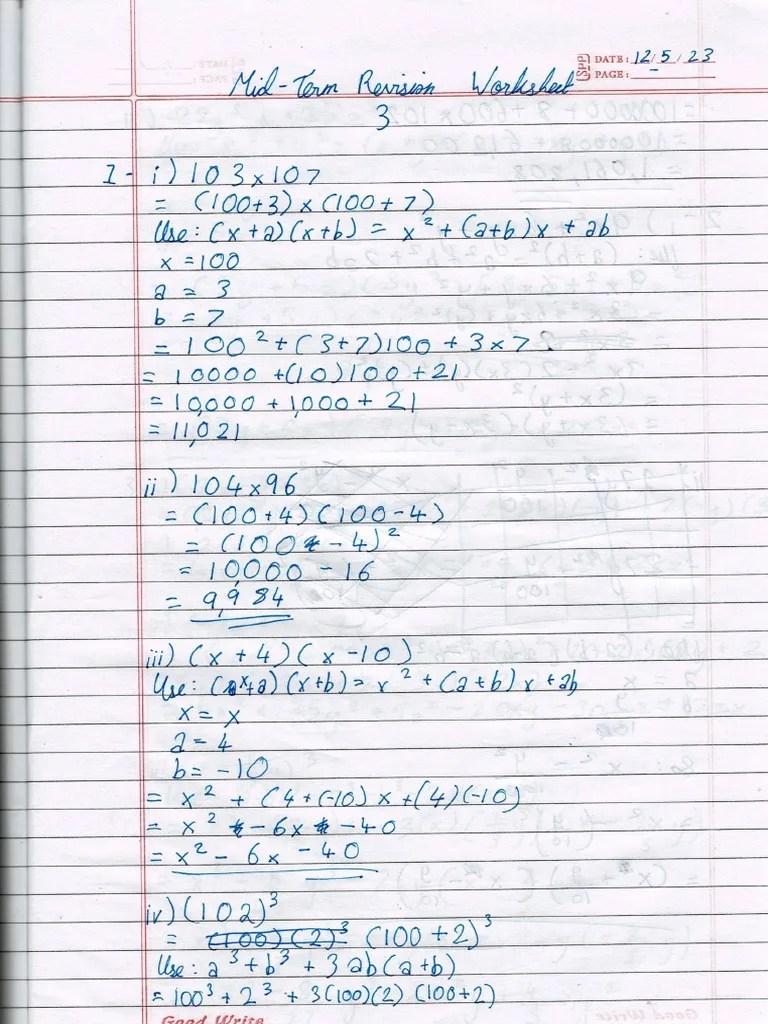 DATE: 12/5/23
PAGE:
Mid-Term Revision Worksheet
3
1- i) 103x107
= (100+3) x (100+7)
Use: (x+a)(x+b) = x² + (a+b)x + ab
x = 100
a = 3
b = 7
= 100² + (3+7)100 + 3x7
= 10000 + (10)100 + 21
= 10,000 + 1,000 + 21
= 11,021
ii) 104x96
= (100+4)(100-4)
= (100 - 4)²
= 10,000 - 16
= 9,984
iii) (x+4)(x-10)
Use: (x+a)(x+b) = x² + (a+b)x + ab
x = x
a = 4
b = -10
= x² + (4+(-10)x + (4)(-10)
= x² - 6x - 40
= x² - 6x - 40
iv) (102)³
= (100)(2)³ (100+2)³
Use: a³ + b³ + 3ab(a+b)
= 100³ + 2³ + 3(100)(2)(100+2)
Good Write